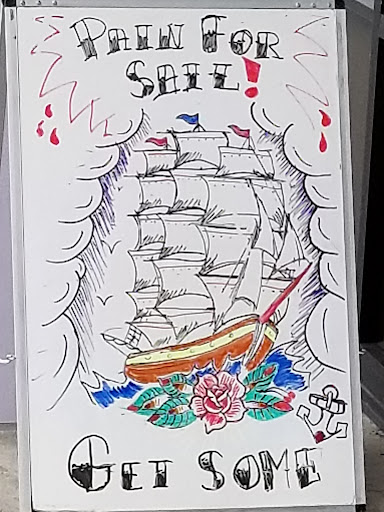 PAIN FOR
SAIL!
GET SOME